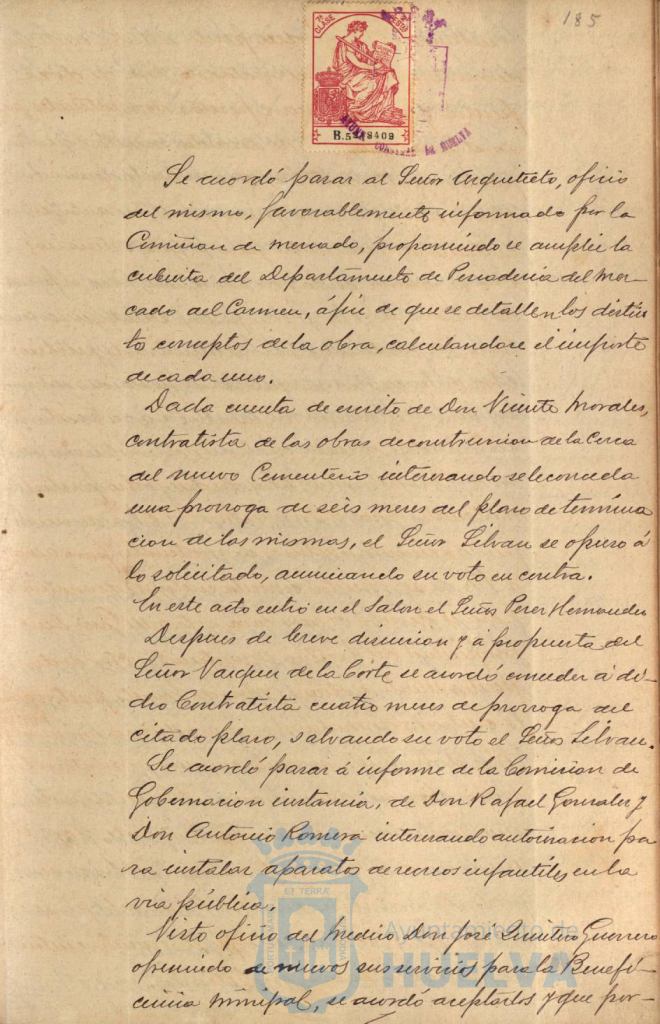 185
7ª CLASE
B.5 8409
AYUNTº CONSTNAL DE HUELVA
Se acordó pasar al Señor Arquitecto, oficio
del mismo, favorablemente informado por la
Comision de mercado, proponiendo se amplie la
cubierta del Departamento de Pescaderia del Mer-
cado del Carmen, á fin de que se detallen los distin
to conceptos de la obra, calculandose el importe
de cada uno.
Dada cuenta de escrito de Don Vicente Morales,
contratista de las obras de construccion de la Cerca
del nuevo Cementerio interesando se le conceda
una prorroga de seis meses del plazo de termina
cion de las mismas, el Señor Silvan se opuso á
lo solicitado, anunciando su voto en contra.
En este acto entró en el Salon el Señor Perez Hernandez
Despues de breve discusion y á propuesta del
Señor Vazquez de la Corte se acordó conceder á di-
cho Contratista cuatro meses de prorroga del
citado plazo, salvando su voto el Señor Silvan.
Se acordó pasar á informe de la Comision de
Gobernacion instancia, de Don Rafael Gonzalez y
Don Antonio Romera interesando autorizacion pa
ra instalar aparatos de recreos infantiles en la
via pública.
Visto oficio del Medico Don José Quintero Guerrero
ofreciendo de nuevos sus servicios para la Benefi-
cencia municipal, se acordó aceptarlos y que por-
ET TERRÆ
Ayuntamiento de
HUELVA